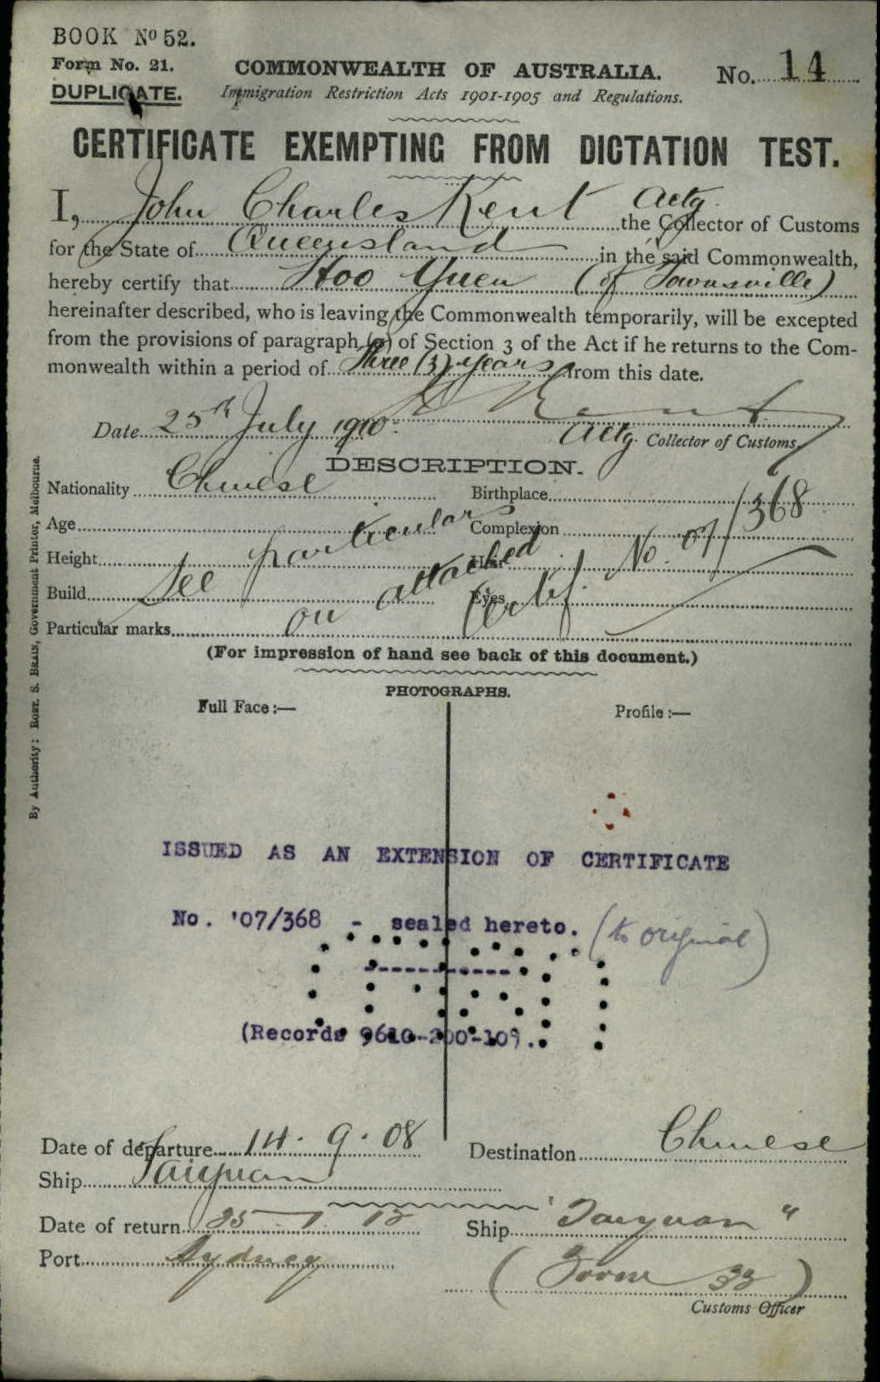 BOOK No 52.
Form No. 21.
DUPLICATE.
COMMONWEALTH OF AUSTRALIA.
Immigration Restriction Acts 1901-1905 and Regulations.
No. 14
CERTIFICATE EXEMPTING FROM DICTATION TEST.
I, John Charles Kent Actg. the Collector of Customs
for the State of Queensland in the said Commonwealth,
hereby certify that Hoo Yuen (of Townsville)
hereinafter described, who is leaving the Commonwealth temporarily, will be excepted
from the provisions of paragraph (a) of Section 3 of the Act if he returns to the Com-
monwealth within a period of Three (3) years from this date.
Date 25th July 1910. Kent
Actg. Collector of Customs.
DESCRIPTION.
Nationality Chinese Birthplace
Age Complexion
Height Hair
Build Eyes
See particulars
on attached Certif. No. 07/368
Particular marks
(For impression of hand see back of this document.)
PHOTOGRAPHS.
Full Face :— Profile :—
ISSUED AS AN EXTENSION OF CERTIFICATE
No. '07/368 - sealed hereto. (to original)
(Records 9610-200-10).
Date of departure 14. 9. 08 Destination Chinese
Ship Taiyuan
Date of return 25 - 1 12 Ship "Taiyuan"
Port Sydney
(Form 32)
Customs Officer
By Authority: ROBT. S. BRAIN, Government Printer, Melbourne.